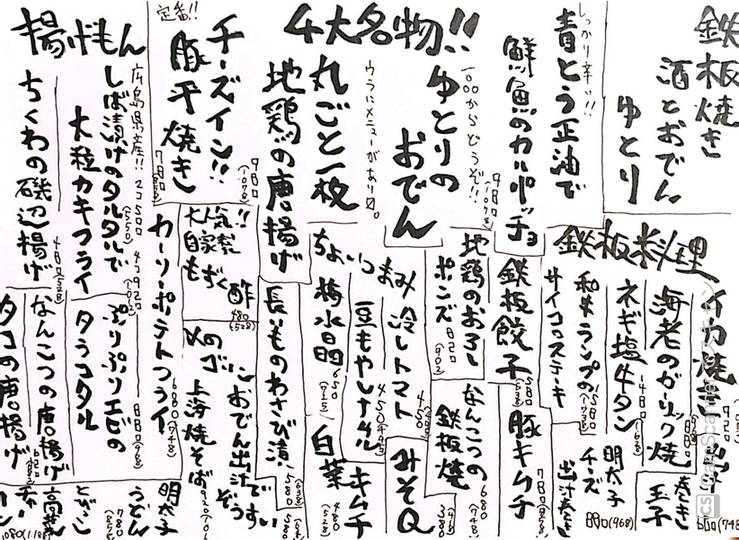 鉄板焼き
酒とおでん
ゆとり
しっかり辛い!!
青とう正油で
鮮魚のカルパッチョ
980
(1078)
4大名物!!
100からどうぞ!!
ゆとりの
おでん
ウラにメニューがあり〼。
丸ごと一枚
地鶏の唐揚げ
980
(1078)
定番!!
チーズイン!!
豚平焼き
780
(858)
揚げもん
広島県産!!
2コ500
(550)
4コ920
大粒カキフライ
しば漬けのタルタルで
ちくわの磯辺揚げ
480
(528)
鉄板料理
イカ焼き
920
海老のガーリック焼
ネギ塩牛タン
1480
和牛ランプの
サイコロステーキ
1580
鉄板餃子
580
豚キムチ
780
(858)
地鶏のおろし
ポンズ
820
(902)
なんこつの
鉄板焼
680
(748)
明太子
チーズ
出汁巻き
880(968)
巻き
玉子
680(748)
ちょいつまみ
冷しトマト
450
豆もやしナムル
450
梅水晶
650
(715)
みそQ
380
キムチ
白菜
480
(528)
長いものわさび漬
580
(638)
大人気!!
自家製
もずく酢
480
(528)
〆のゴハン
おでん出汁で
ぞうすい
580
上海焼そば
920
明太子
うどん
780
(858)
とんこつ
高菜
チャー
1080(1188)
カーリーポテトフライ
680
(748)
ぷりぷりエビの
タラコタル
880
なんこつの唐揚げ
620
タコの唐揚げ